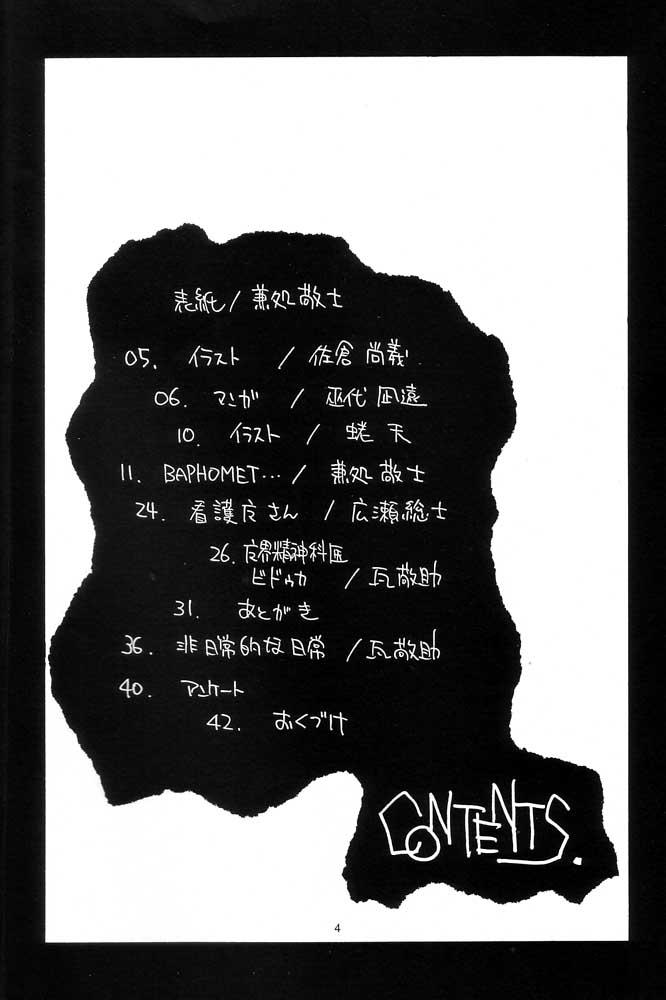 表紙/兼処敬士
05. イラスト / 佐倉尚義
06. マンガ / 巫代凪遠
10. イラスト / 蜷天
11. BAPHOMET… / 兼処敬士
24. 看護疫さん / 広瀬総士
26. 疫界精神科医
ビドゥカ / 瓦敬助
31. あとがき
36. 非日常的な日常 / 瓦敬助
40. アンケート
42. おくづけ
CONTENTS.
4